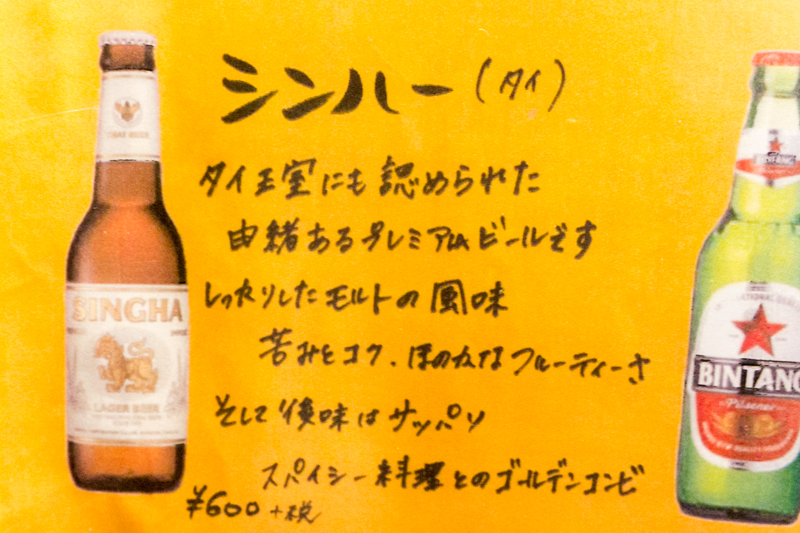 シンハー(タイ)
タイ王室にも認められた
由緒あるプレミアムビールです
しっかりしたモルトの風味
苦みとコク、ほのかなフルーティーさ
そして後味はサッパリ
スパイシー料理とのゴールデンコンビ
¥600+税
THAI BEER
SINGHA
LAGER BEER
BINTANG
BINTANG
Pilsener